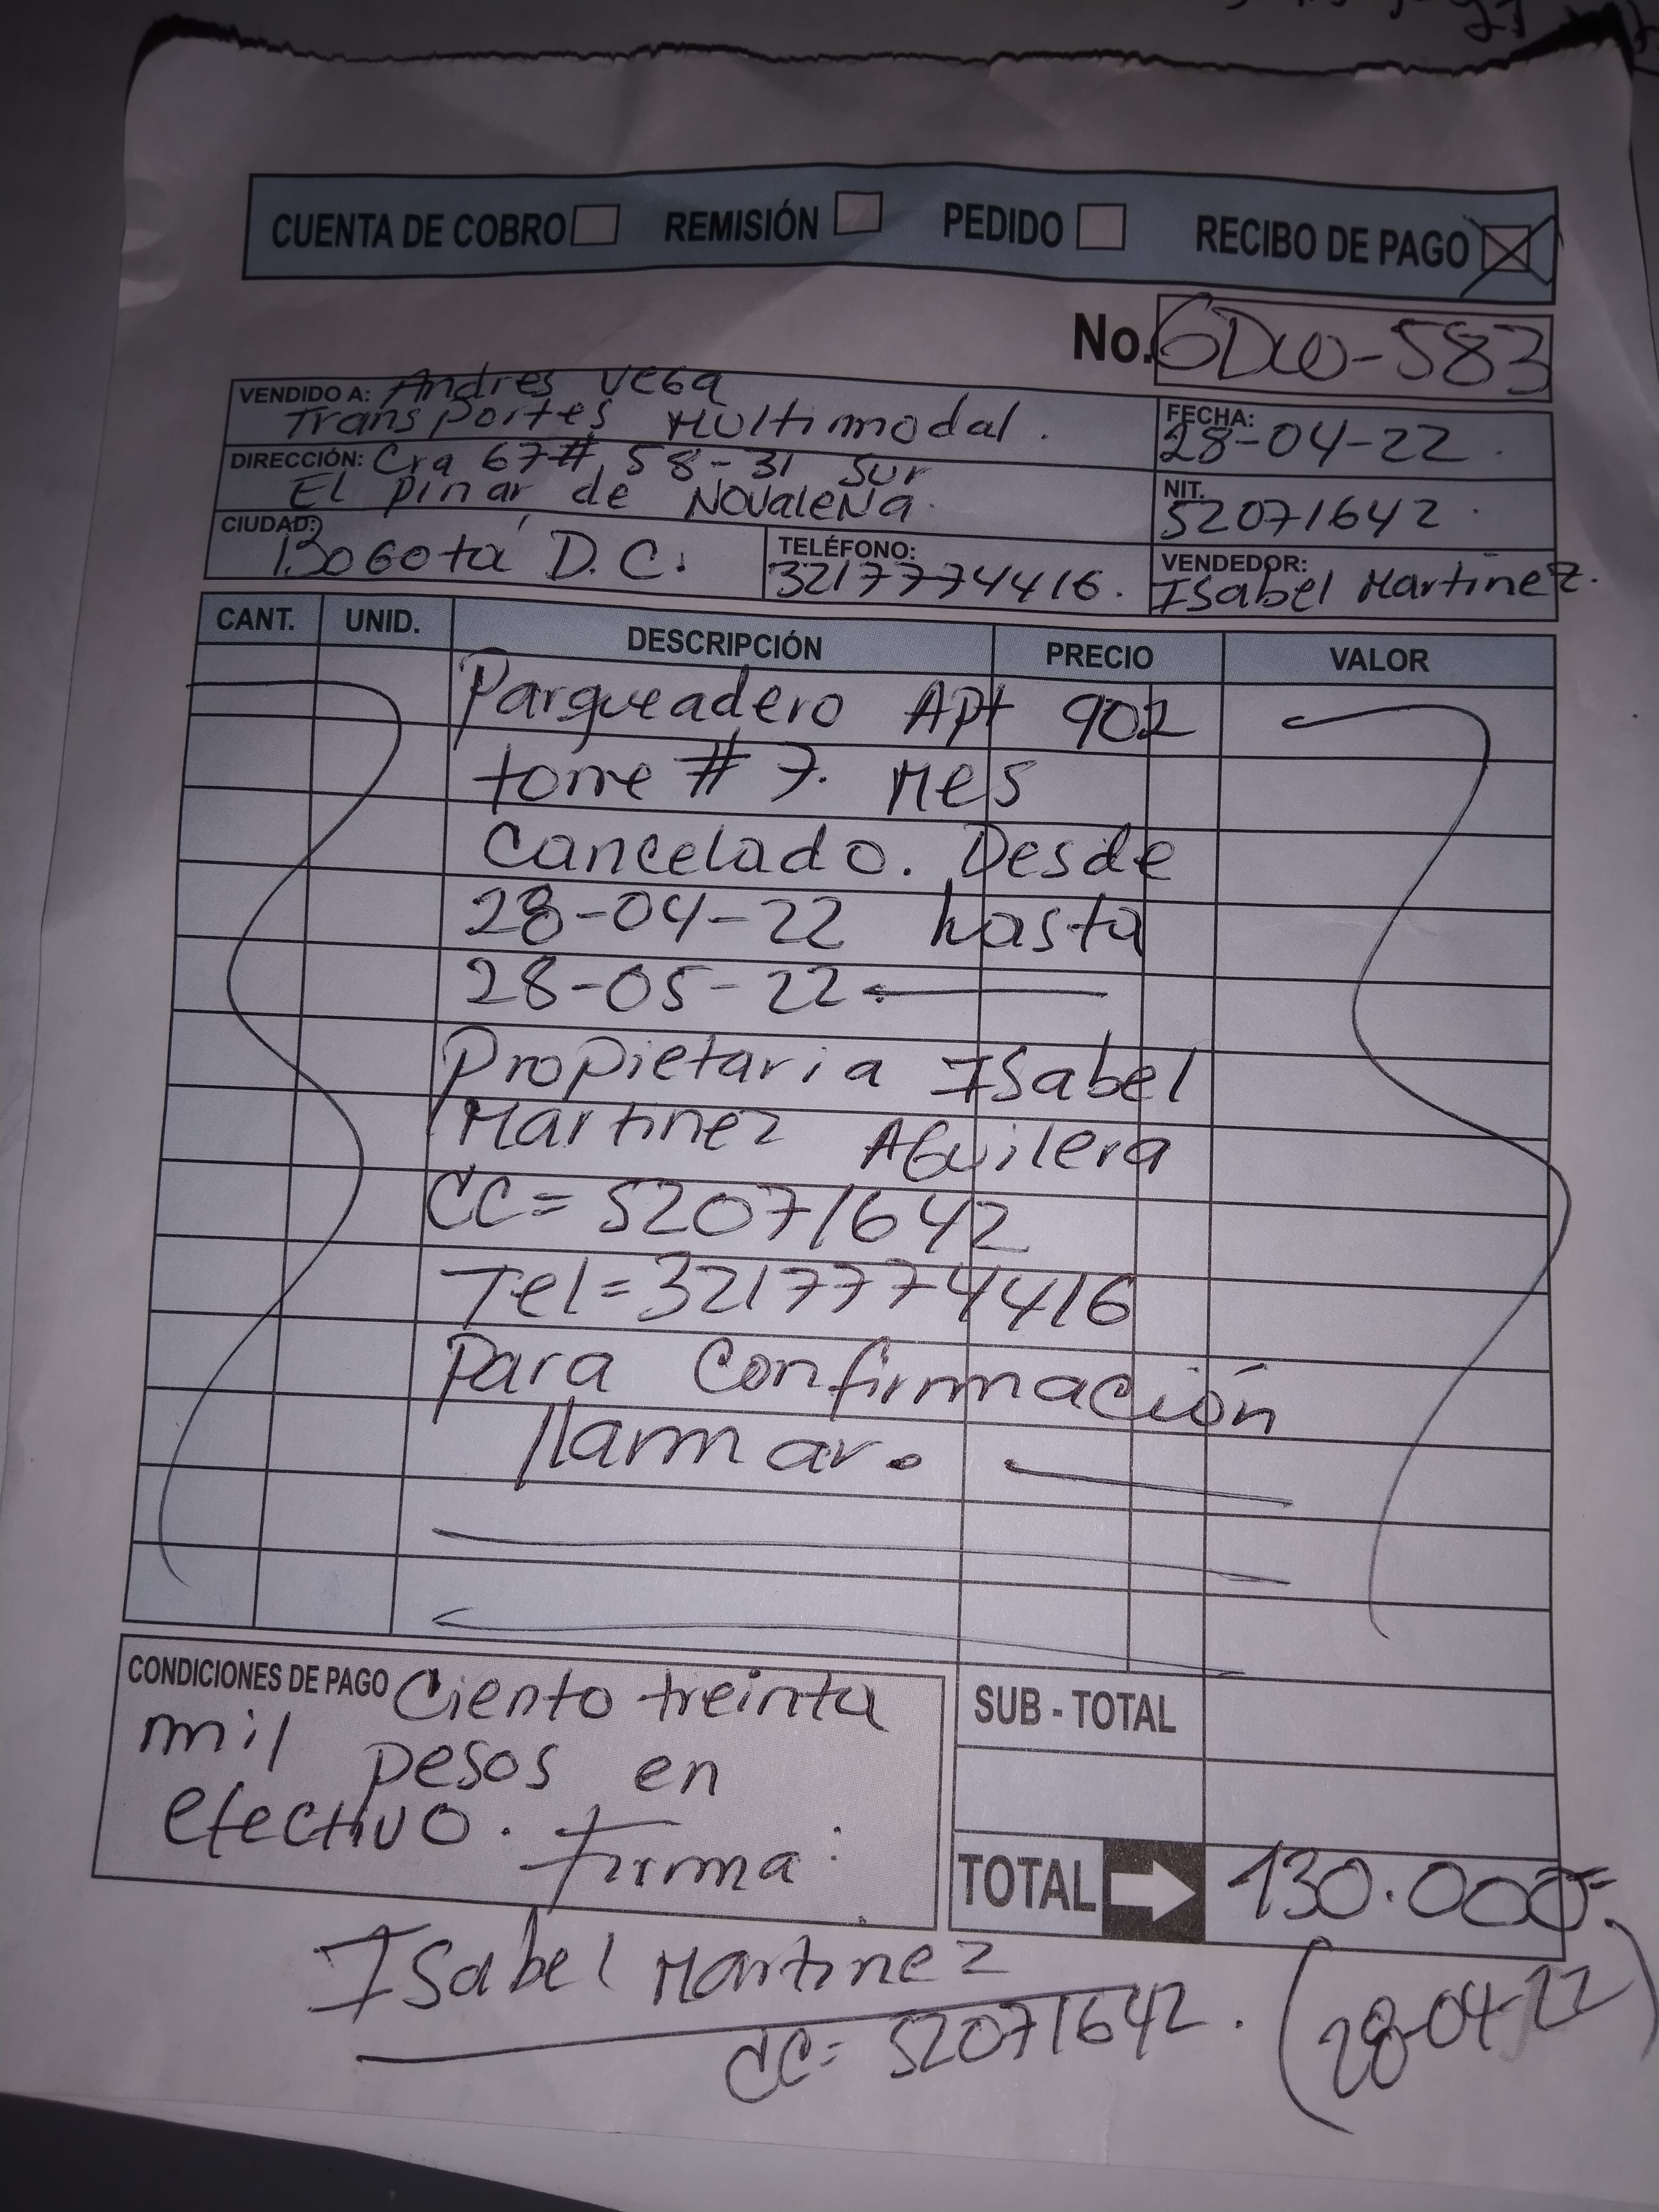 CUENTA DE COBRO REMISIÓN PEDIDO RECIBO DE PAGO
No. GDW-583
VENDIDO A: Andres Vega
Transportes Multimodal.
FECHA:
28-04-22.
DIRECCIÓN: Cra 67#, 58-31 Sur
El pinar de Novalena.
NIT.
52071642.
CIUDAD:
Bogotá D.C.
TELÉFONO:
3217774416.
VENDEDOR:
Isabel Martinez.
CANT. UNID. DESCRIPCIÓN PRECIO VALOR
Parqueadero Apt 902
torre # 7. Mes
Cancelado. Desde
28-04-22 hasta
28-05-22
Propietaria Isabel
Martinez Aguilera
CC= 52071642
Tel= 3217774416
Para Confirmación
llamar.
CONDICIONES DE PAGO Ciento treinta
mil pesos en
efectivo. Firma:
SUB - TOTAL
TOTAL 130.000=
Isabel Martinez
CC= 52071642. (28-04-22)